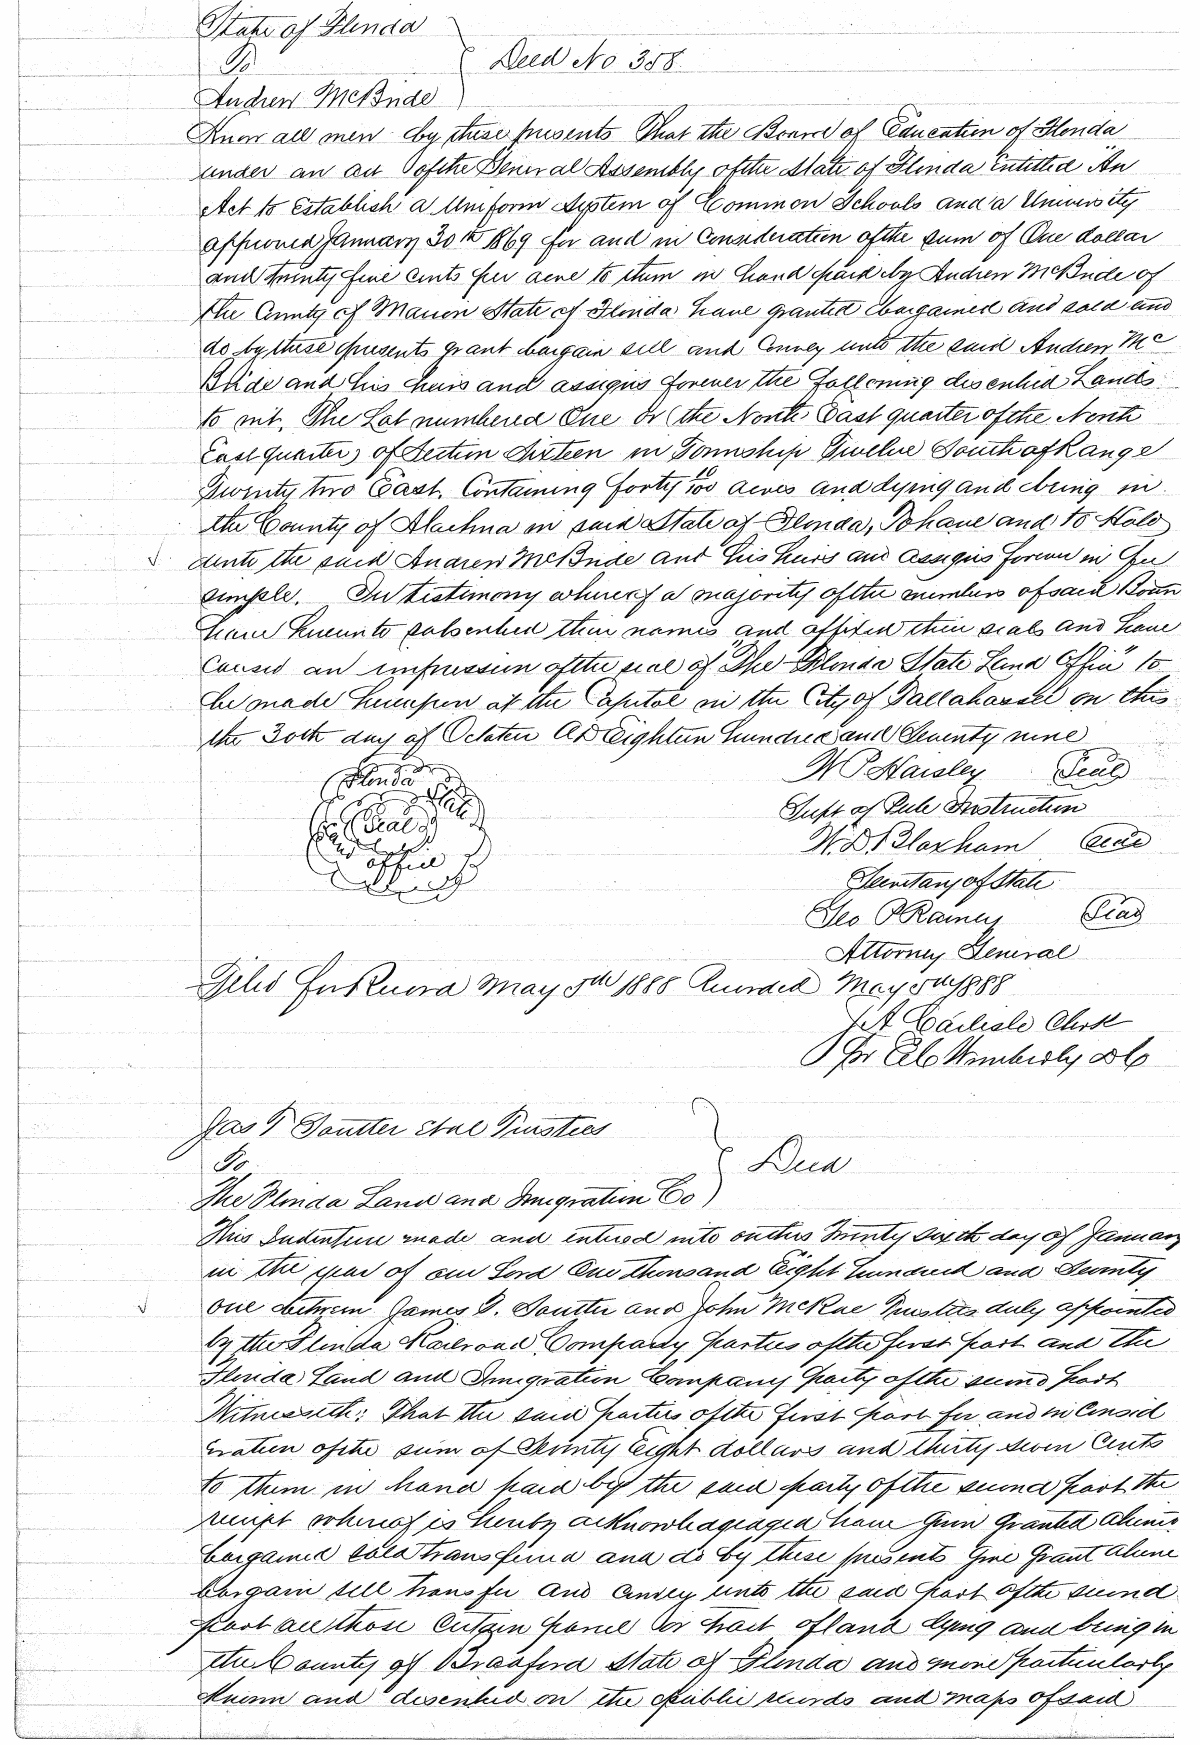 State of Florida
To
Deed No 358.
Andrew McBride
Know all men by these presents That the Board of Education of Florida
under an act of the General Assembly of the State of Florida Entitled "An
Act to Establish a Uniform System of Common Schools and a University
approved January 30th 1869 for and in Consideration of the sum of One dollar
and twenty five cents per acre to them in hand paid by Andrew McBride of
the County of Marion State of Florida have granted bargained and sold and
do by these presents grant bargain sell and Convey unto the said Andrew Mc
Bride and his heirs and assigns forever the following described Lands
to wit, The Lot numbered One or (the North East quarter of the North
East quarter) of Section Sixteen in Township Twelve South of Range
Twenty two East, Containing forty 10/100 acres and lying and being in
the County of Alachua in said State of Florida, To have and to Hold
unto the said Andrew McBride and his heirs and assigns forever in fee
simple. In testimony whereof a majority of the members of said Board
have hereunto subscribed their names and affixed their seals and have
Caused an impression of the seal of "The Florida State Land Office" to
be made hereupon at the Capitol in the City of Tallahassee on this
the 30th day of October AD Eighteen hundred and Seventy nine
Florida
State
Seal
Land
office
W P Haisley Seal
Supt of Pub Instruction
W. D. Bloxham Seal
Secretary of State
Geo P Raney Seal
Attorney General
Filed for Record May 5th 1888 Recorded May 5th 1888
J A Carlisle Clerk
Per Wimberly DC
Jas T Soutter et al Trustees
To
Deed
The Florida Land and Imigration Co
This Indenture made and entered into on this Twenty Sixth day of January
in the year of our Lord One thousand Eight hundred and Seventy
one between James T. Soutter and John McRae Trustees duly appointed
by the Florida Railroad Company parties of the first part and the
Florida Land and Imigration Company party of the second part
Witnesseth: That the said parties of the first part for and in Consid
eration of the sum of Seventy Eight dollars and thirty seven Cents
to them in hand paid by the said party of the second part the
receipt whereof is hereby acknowledgedged have given granted aliened
bargained sold transferred and do by these presents Give Grant aliene
bargain sell transfer and Convey unto the said part of the second
part all those certain parcel or tract of land lying and being in
the County of Bradford State of Florida and more particularly
known and described on the public records and maps of said